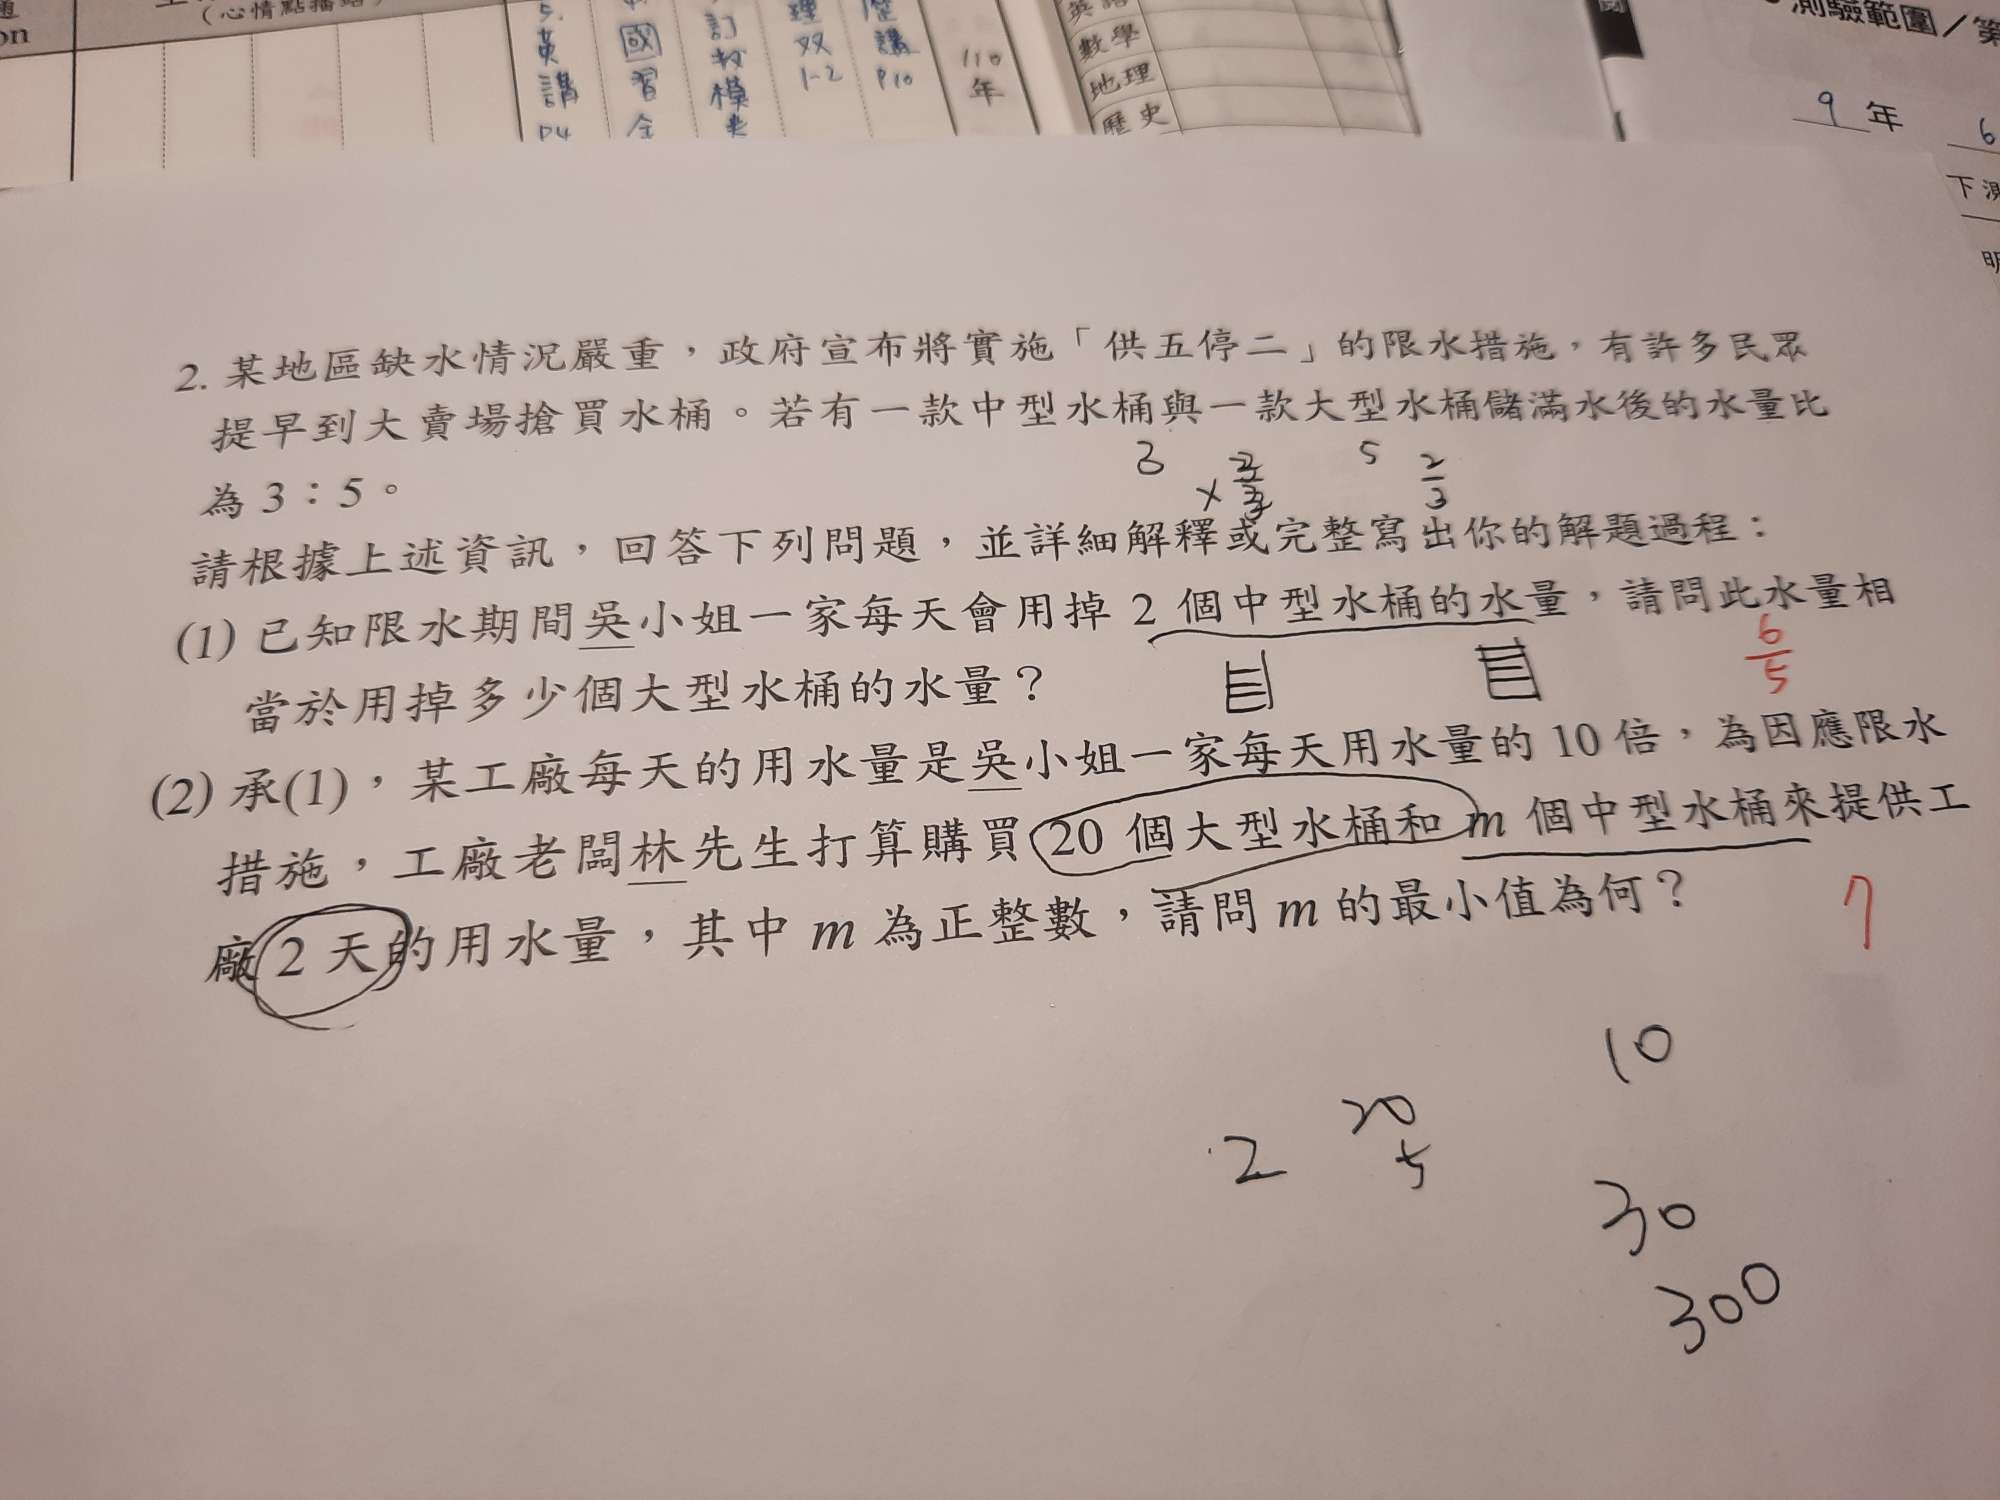 on
(心情點播站)
5.英講P4
國習全
訂
理双1-2
講P10
110年
英語
數學
地理
歷史
測驗範圍/第
9年 6
下測
明
2. 某地區缺水情況嚴重,政府宣布將實施「供五停二」的限水措施,有許多民眾
提早到大賣場搶買水桶。若有一款中型水桶與一款大型水桶儲滿水後的水量比
3 5 2/3
為3:5。
請根據上述資訊,回答下列問題,並詳細解釋或完整寫出你的解題過程:
(1) 已知限水期間吳小姐一家每天會用掉 2 個中型水桶的水量,請問此水量相
當於用掉多少個大型水桶的水量?
6/5
(2) 承(1),某工廠每天的用水量是吳小姐一家每天用水量的 10 倍,為因應限水
措施,工廠老闆林先生打算購買 20 個大型水桶和 m 個中型水桶來提供工
廠 2 天的用水量,其中 m 為正整數,請問 m 的最小值為何?
7
10
20
2 5
30
300